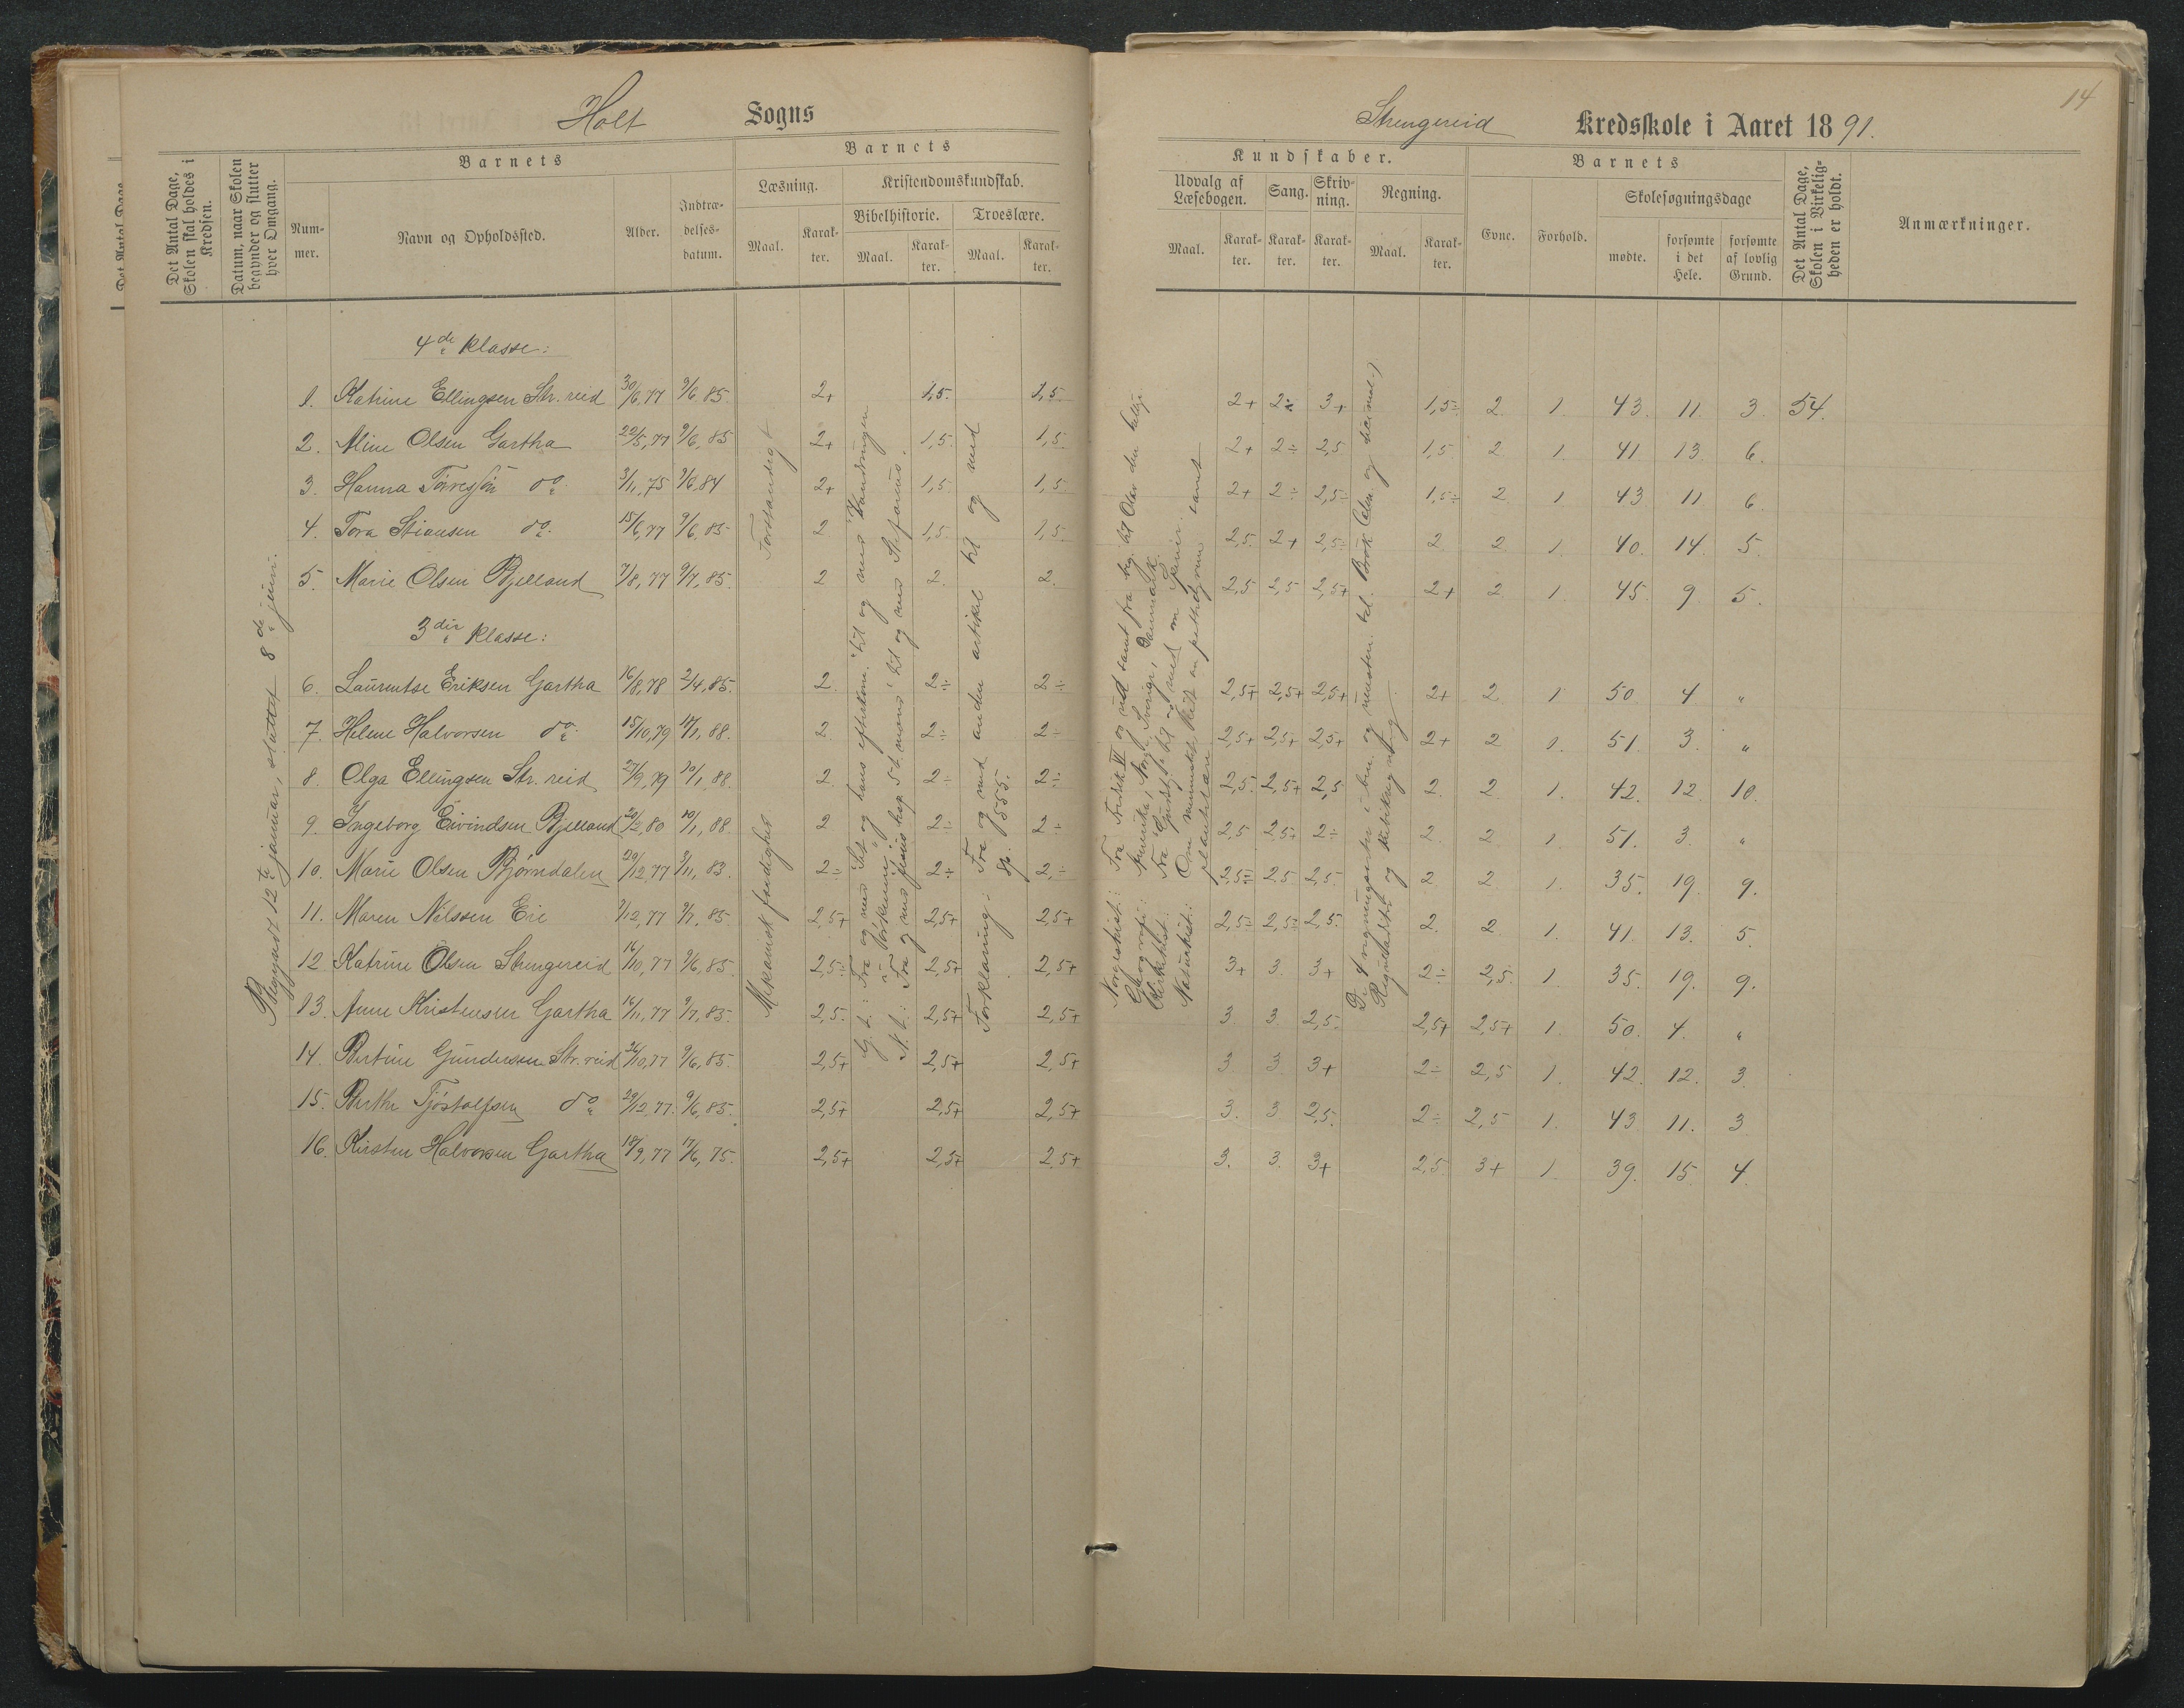 Holt Sogns
Det Antal Dage, Skolen skal holdes i Kredsen.
Datum, naar Skolen begynder og slutter hver Omgang.
Barnets
Nummer.
Navn og Opholdssted.
Alder.
Indtrædelsesdatum.
Barnets
Læsning.
Maal.
Karakter.
Kristendomskundskab.
Bibelhistorie.
Maal.
Karakter.
Troeslære.
Maal.
Karakter.
Begyndt 12te januar, sluttet 8de juni.
4de klasse:
1. Katrine Ellingsen Str. reid 30/6,77 9/6 85 2+ 1,5. 1,5
2. Aline Olsen Gartha 22/5,77 9/6,85 2+ 1,5. 1,5.
3. Hanna Torresen do. 3/11,75 9/6,84 2+ 1,5 1,5
4. Tora Stiansen do. 15/6,77 9/6,85 2 1,5. 1,5.
5. Marie Olsen Bjelland 7/8,77 9/7,85. 2 2. 2.
3die klasse:
6. Laurentse Eriksen Gartha 16/8,78 2/4,85. 2. 2÷ 2÷
7. Helene Halvorsen do. 15/10,79 17/1,88. 2. 2÷ 2÷
8. Olga Ellingsen Str. reid 27/9,79 20/1 88. 2. 2÷ 2÷
9. Ingeborg Eivindsen Bjelland 20/2,80 10/1,88. 2 2÷ 2÷
10. Marie Olsen Bjørndalen 29/12,77 3/11,83. 2÷ 2÷ 2,÷
11. Maren Nilssen Eie 2/12,77 9/7,85. 2,5+ 2,5+ 2,5+
12 Katrine Olsen Strengereid 16/10,77 9/6,85. 2,5÷ 2,5+ 2,5+
13. Anne Kristensen Gartha 16/11,77 9/7,85. 2,5. 2,5+ 2,5+
14. Bertine Gundersen Str. reid 26/10,77 9/6,85. 2,5+ 2,5+ 2,5+
15. Berthe Tjøstolfsen do. 29/12,77. 9/6,85. 2,5+ 2,5+ 2,5+
16. Kirsten Halvorsen Gartha 18/9,77 17/6,75. 2,5+ 2,5+ 2,5+
Mekanisk færdighed
Forstandigt
Forklaring: Fra og med anden artikel til og med
sp. 555.
14
Strengereid Kredsskole i Aaret 1891.
Kundskaber.
Udvalg af Læsebogen.
Maal.
Karakter.
Sang.
Karakter.
Skrivning.
Karakter.
Regning.
Maal.
Karakter.
Barnets
Evne.
Forhold.
Skolesøgningsdage
mødte.
forsømte i det Hele.
forsømte af lovlig Grund.
Det Antal Dage, Skolen i Virkeligheden er holdt.
Anmærkninger.
2+ 2÷ 3+ 1,5÷ 2. 1. 43. 11. 3. 54.
2+ 2÷ 2,5 1,5. 2. 1. 41. 13. 6.
2+ 2÷ 2,5÷ 1,5÷ 2 1 43 11 6.
2,5. 2+ 2,5÷ 2 2. 1. 40. 14. 5.
2,5 2,5 2,5+ 2+ 2. 1. 45. 9. 5.
2,5+ 2,5+ 2,5+ 2+ 2 1 50. 4 "
2,5+ 2,5+ 2,5+ 2+ 2 1. 51. 3. "
2,5. 2,5+ 2,5 2. 2. 1. 42. 12. 10.
2,5 2,5+ 2÷ 2 2 1. 51. 3. "
2,5÷ 2,5 2,5. 2 2. 1. 35. 19. 9.
2,5÷ 2,5÷ 2,5. 2. 2. 1. 41. 13. 5.
3+ 3. 3+ 2÷ 2,5. 1. 35. 19. 9.
3. 3. 2,5. 2,5+ 2,5+ 1. 50. 4. "
3 3. 3+ 2÷ 2,5 1. 42. 12. 3.
3. 3 2,5. 2÷ 2,5 1. 43. 11. 3
3. 3. 3+ 2,5 3+ 1. 39. 15. 4.